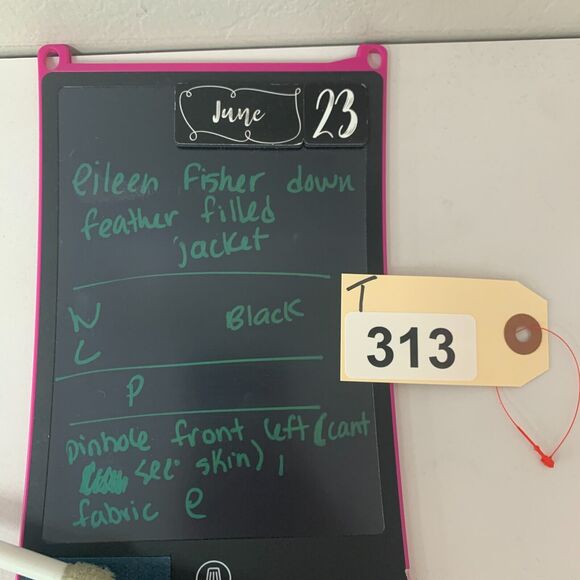 June 23
Eileen Fisher down
feather filled
jacket
N Black
L
P
Pinhole front left (cant
see skin) ,
fabric e
T
313